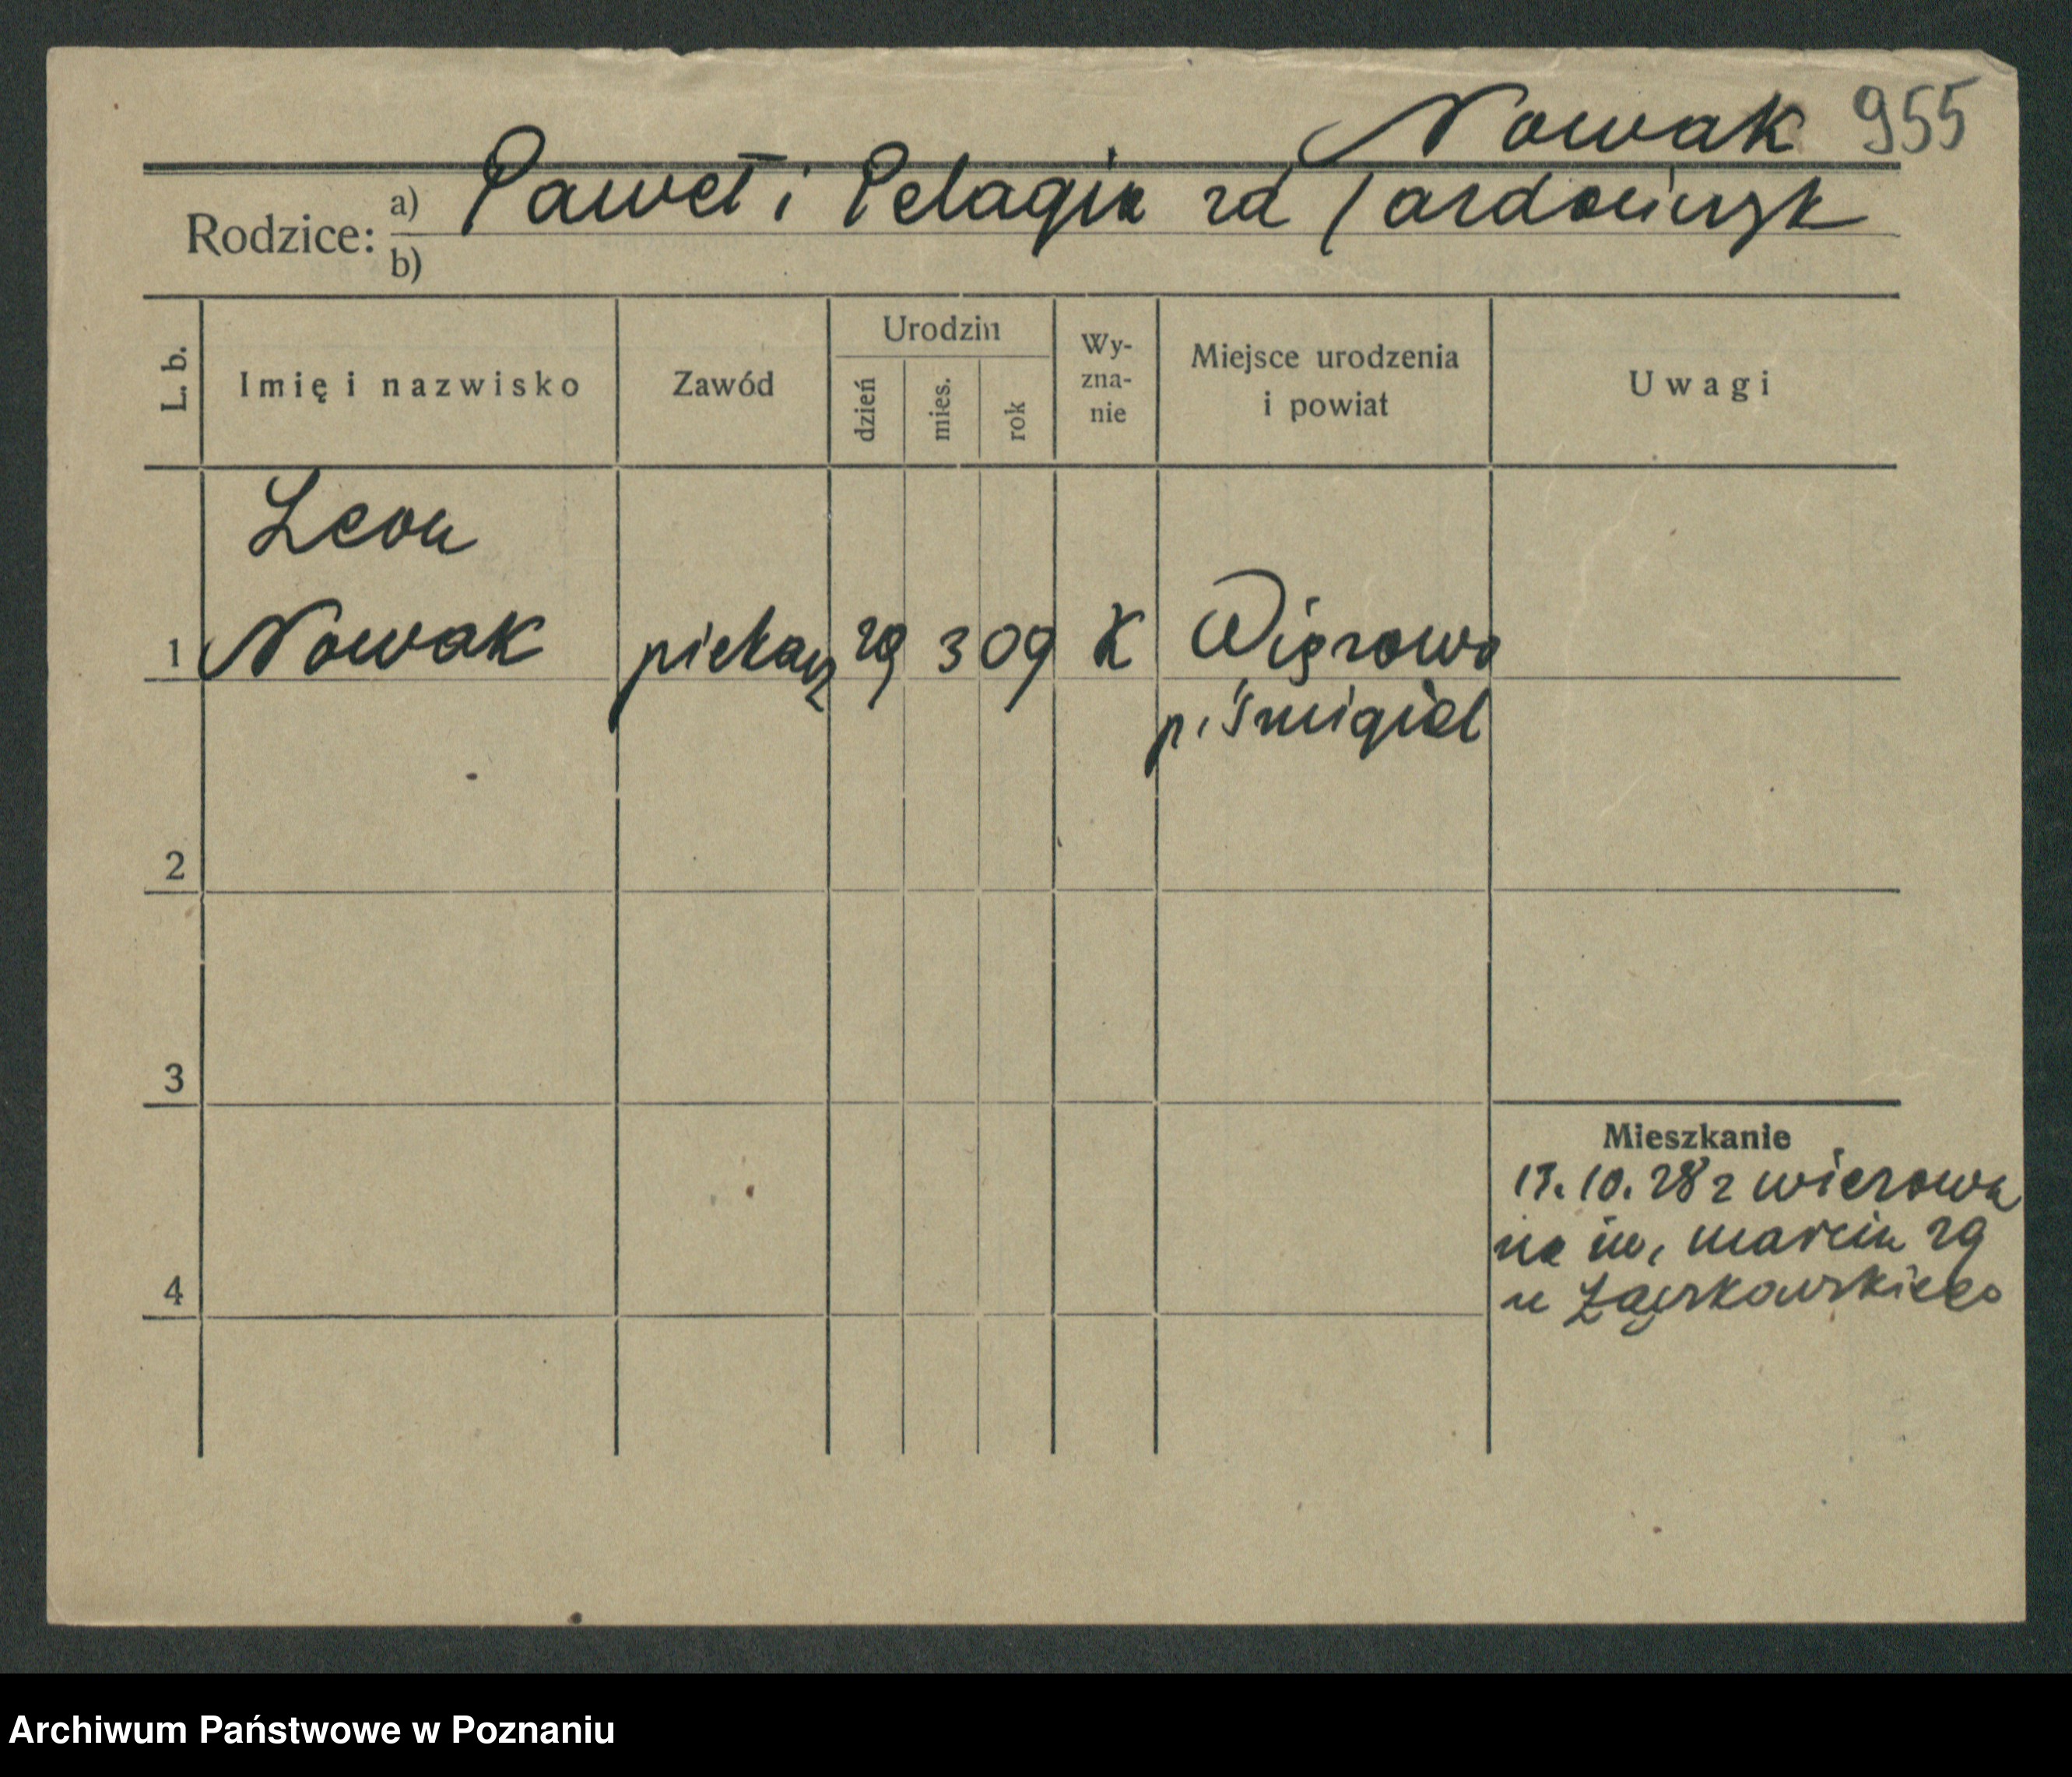 Nowak 955
Rodzice: a) Paweł i Pelagia zd
b)
L. b. Imię i nazwisko Zawód Urodzin dzień mies. rok Wy-zna-nie Miejsce urodzenia i powiat Uwagi
Leon
1 Nowak piekarz 29 3 09 K
p. Śmigiel
2
3
Mieszkanie
10. 28 z
na św. Marcin 29
4 u
Archiwum Państwowe w Poznaniu